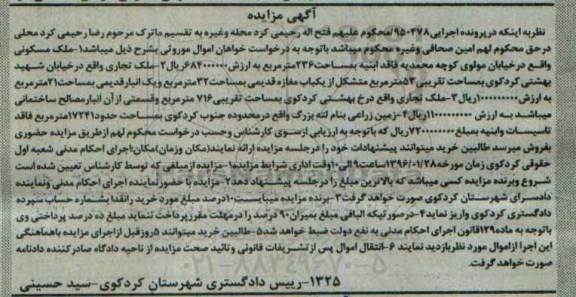 آگهی مزایده
نظریه اینکه در پرونده اجرایی ۹۵۰۴۷۸ محکوم علیهم فتح اله رحیمی کرد محله وغیره به تقسیم ماترک مرحوم رضا رحیمی کرد محلی
در حق محکوم لهم امین صحافی وغیره محکوم میباشد باتوجه به درخواست خواهان اموال موروثی بشرح ذیل میباشد۱-ملک مسکونی
واقع درخیابان مولوی کوچه محمدیه فاقد ابنیه بمساحت۲۳۶مترمربع به ارزش ۶۸۴۰۰۰۰۰۰ریال۲-ملک تجاری واقع درخیابان شهید
بهشتی کردکوی بمساحت تقریبی۵۳مترمربع متشکل از یکباب مغازه قدیمی بمساحت۳۲مترمربع ویک انبار قدیمی بمساحت۲۱مترمربع
به ارزش ریال۳-ملک تجاری واقع درخ بهشتی کردکوی بمساحت تقریبی۷۱۶ مترمربع وقسمتی از آن انبارمصالح ساختمانی
میباشد به ارزش ریال۴-زمین زراعی بنام لته بزرگ واقع درمحدوده جنوب کردکوی بمساحت حدود۱۷۲۴۱مترمربع فاقد
تاسیسات وابنیه بمبلغ ریال که باتوجه به ارزیابی ازسوی کارشناس وحسب درخواست محکوم لهم ازطریق مزایده حضوری
بفروش میرسد طالبین خرید میتوانند پیشنهادات خود را درجلسه مزایده ارائه نمایند(مکان وزمان)مکان:اجرای احکام مدنی شعبه اول
حقوقی کردکوی زمان مورخه۱۳۹۶/۰۱/۲۸ساعت۹الی۱۰وقت اداری شرایط مزایده۱-مزایده ازمبلغی که توسط کارشناس تعیین شده است
شروع وبرنده مزایده کسی میباشد که بالاترین مبلغ را درجلسه پیشنهاد دهد۲-مزایده با حضورنماینده اجرای احکام مدنی ونماینده
دادسرای شهرستان کردکوی صورت خواهد گرفت۳-برنده مزایده میبایست۱۰درصد مبلغ مورد خرید رانقدا بشماره حساب سپرده
دادگستری کردکوی واریز نماید۴-درصورتیکه الباقی مبلغ بمیزان۹۰درصد را درمهلت مقرر پرداخت ننماید مبلغ ده درصد پرداختی وی
باتوجه به ماده۱۲۹قانون اجرای احکام مدنی به نفع دولت ضبط خواهد شد۵-طالبین خرید میتوانند۵روزقبل ازاجرای مزایده باهماهنگی
این اجرا ازاموال مورد نظربازدید نمایند ۶-انتقال اموال پس از تشریفات قانونی وتائید صحت مزایده از ناحیه دادگاه صادرکننده دادنامه
صورت خواهد گرفت.
۱۳۲۵-رییس دادگستری شهرستان کردکوی-سید حسینی